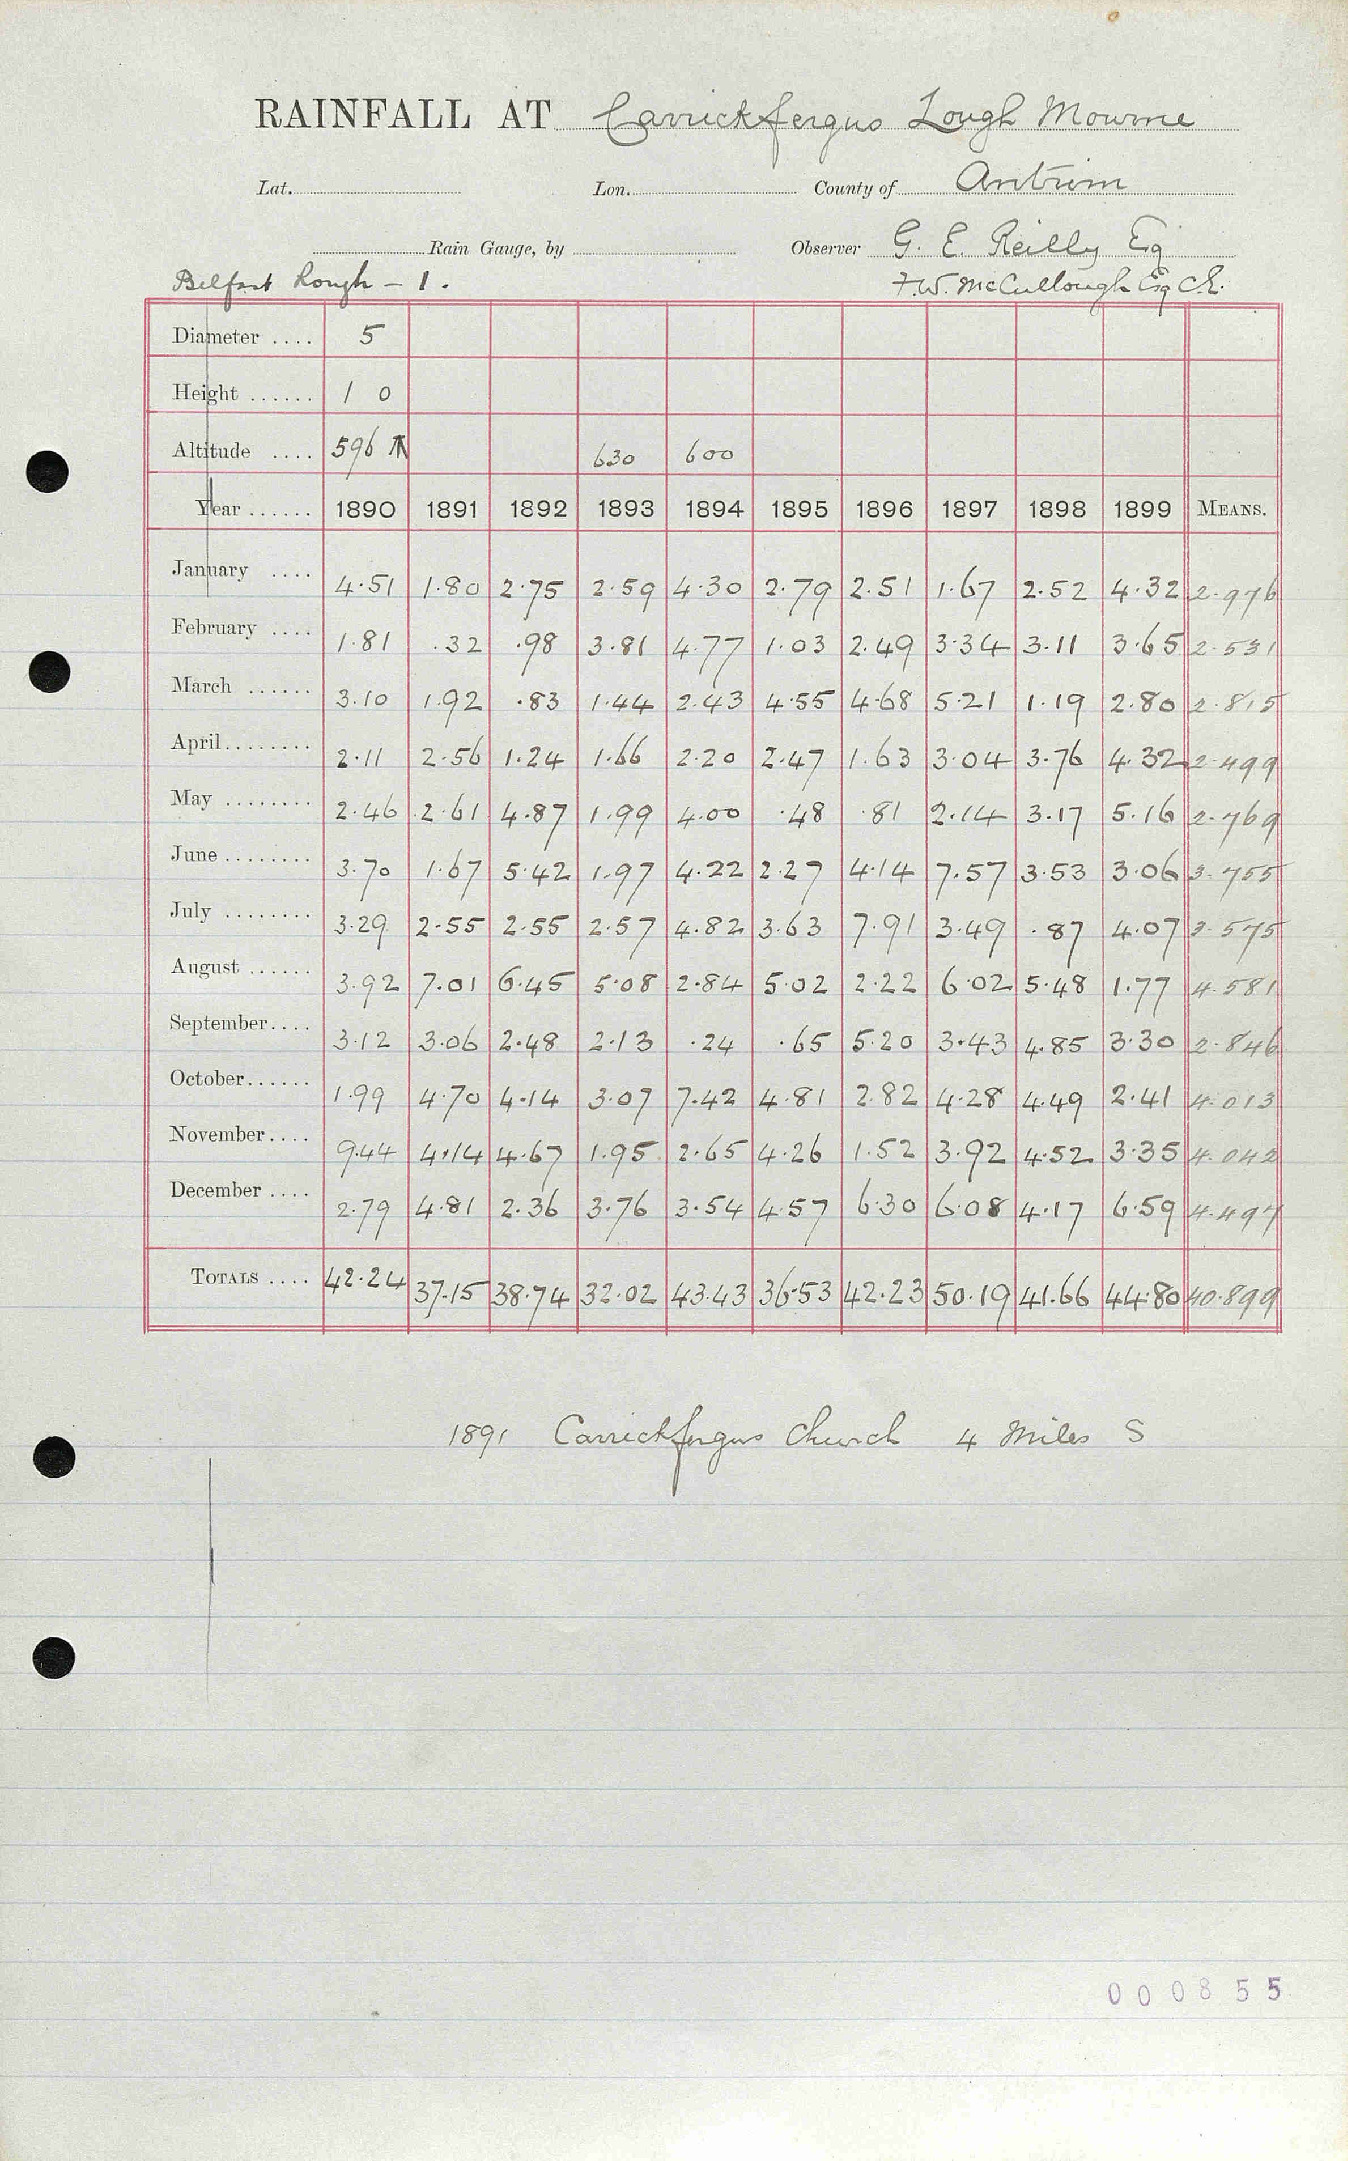 RAINFALL AT Carrickfergus Lough Mourne
Lat. Lon. County of Antrim
Rain Gauge, by Observer G. E. Reilly Esq
Belfast Rough – 1. F.W. McCullough Esq C.E.
Diameter .... 5
Height ...... 1 0
Altitude .... 596 630 600
Year ...... 1890 1891 1892 1893 1894 1895 1896 1897 1898 1899 MEANS.
January .... 4.51 1.80 2.75 2.59 4.30 2.79 2.51 1.67 2.52 4.32 2.976
February .... 1.81 .32 .98 3.81 4.77 1.03 2.49 3.34 3.11 3.65 2.531
March ...... 3.10 1.92 .83 1.44 2.43 4.55 4.68 5.21 1.19 2.80 2.815
April........ 2.11 2.56 1.24 1.66 2.20 2.47 1.63 3.04 3.76 4.32 2.499
May ........ 2.46 2.61 4.87 1.99 4.00 .48 .81 2.14 3.17 5.16 2.769
June ........ 3.70 1.67 5.42 1.97 4.22 2.27 4.14 7.57 3.53 3.06 3.755
July ........ 3.29 2.55 2.55 2.57 4.82 3.63 7.91 3.49 .87 4.07 3.575
August ...... 3.92 7.01 6.45 5.08 2.84 5.02 2.22 6.02 5.48 1.77 4.581
September.... 3.12 3.06 2.48 2.13 .24 .65 5.20 3.43 4.85 3.30 2.846
October...... 1.99 4.70 4.14 3.07 7.42 4.81 2.82 4.28 4.49 2.41 4.013
November.... 9.44 4.14 4.67 1.95 2.65 4.26 1.52 3.92 4.52 3.35 4.042
December .... 2.79 4.81 2.36 3.76 3.54 4.57 6.30 6.08 4.17 6.59 4.497
TOTALS .... 42.24 37.15 38.74 32.02 43.43 36.53 42.23 50.19 41.66 44.80 40.899
1891 Carrickfergus Church 4 Miles S
000855